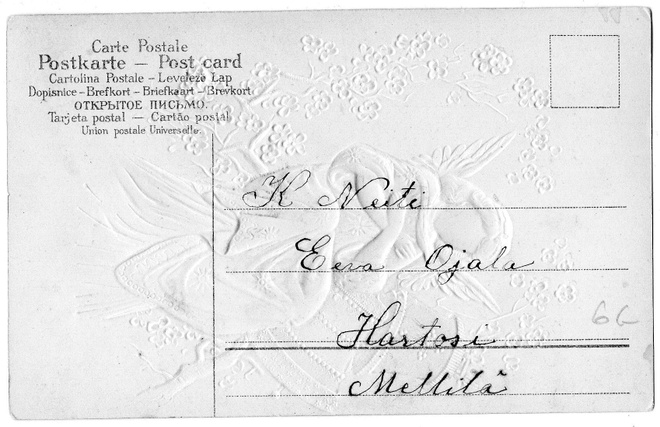 Carte Postale
Postkarte – Post card
Cartolina Postale – Levelező Lap
Dopisnice – Brefkort – Briefkaart – Brevkort
ОТКРЫТОЕ ПИСЬМО.
Tarjeta postal – Cartão postal
Union postale Universelle.
K Neiti
Eeva Ojala
Hartosi
Mellilä